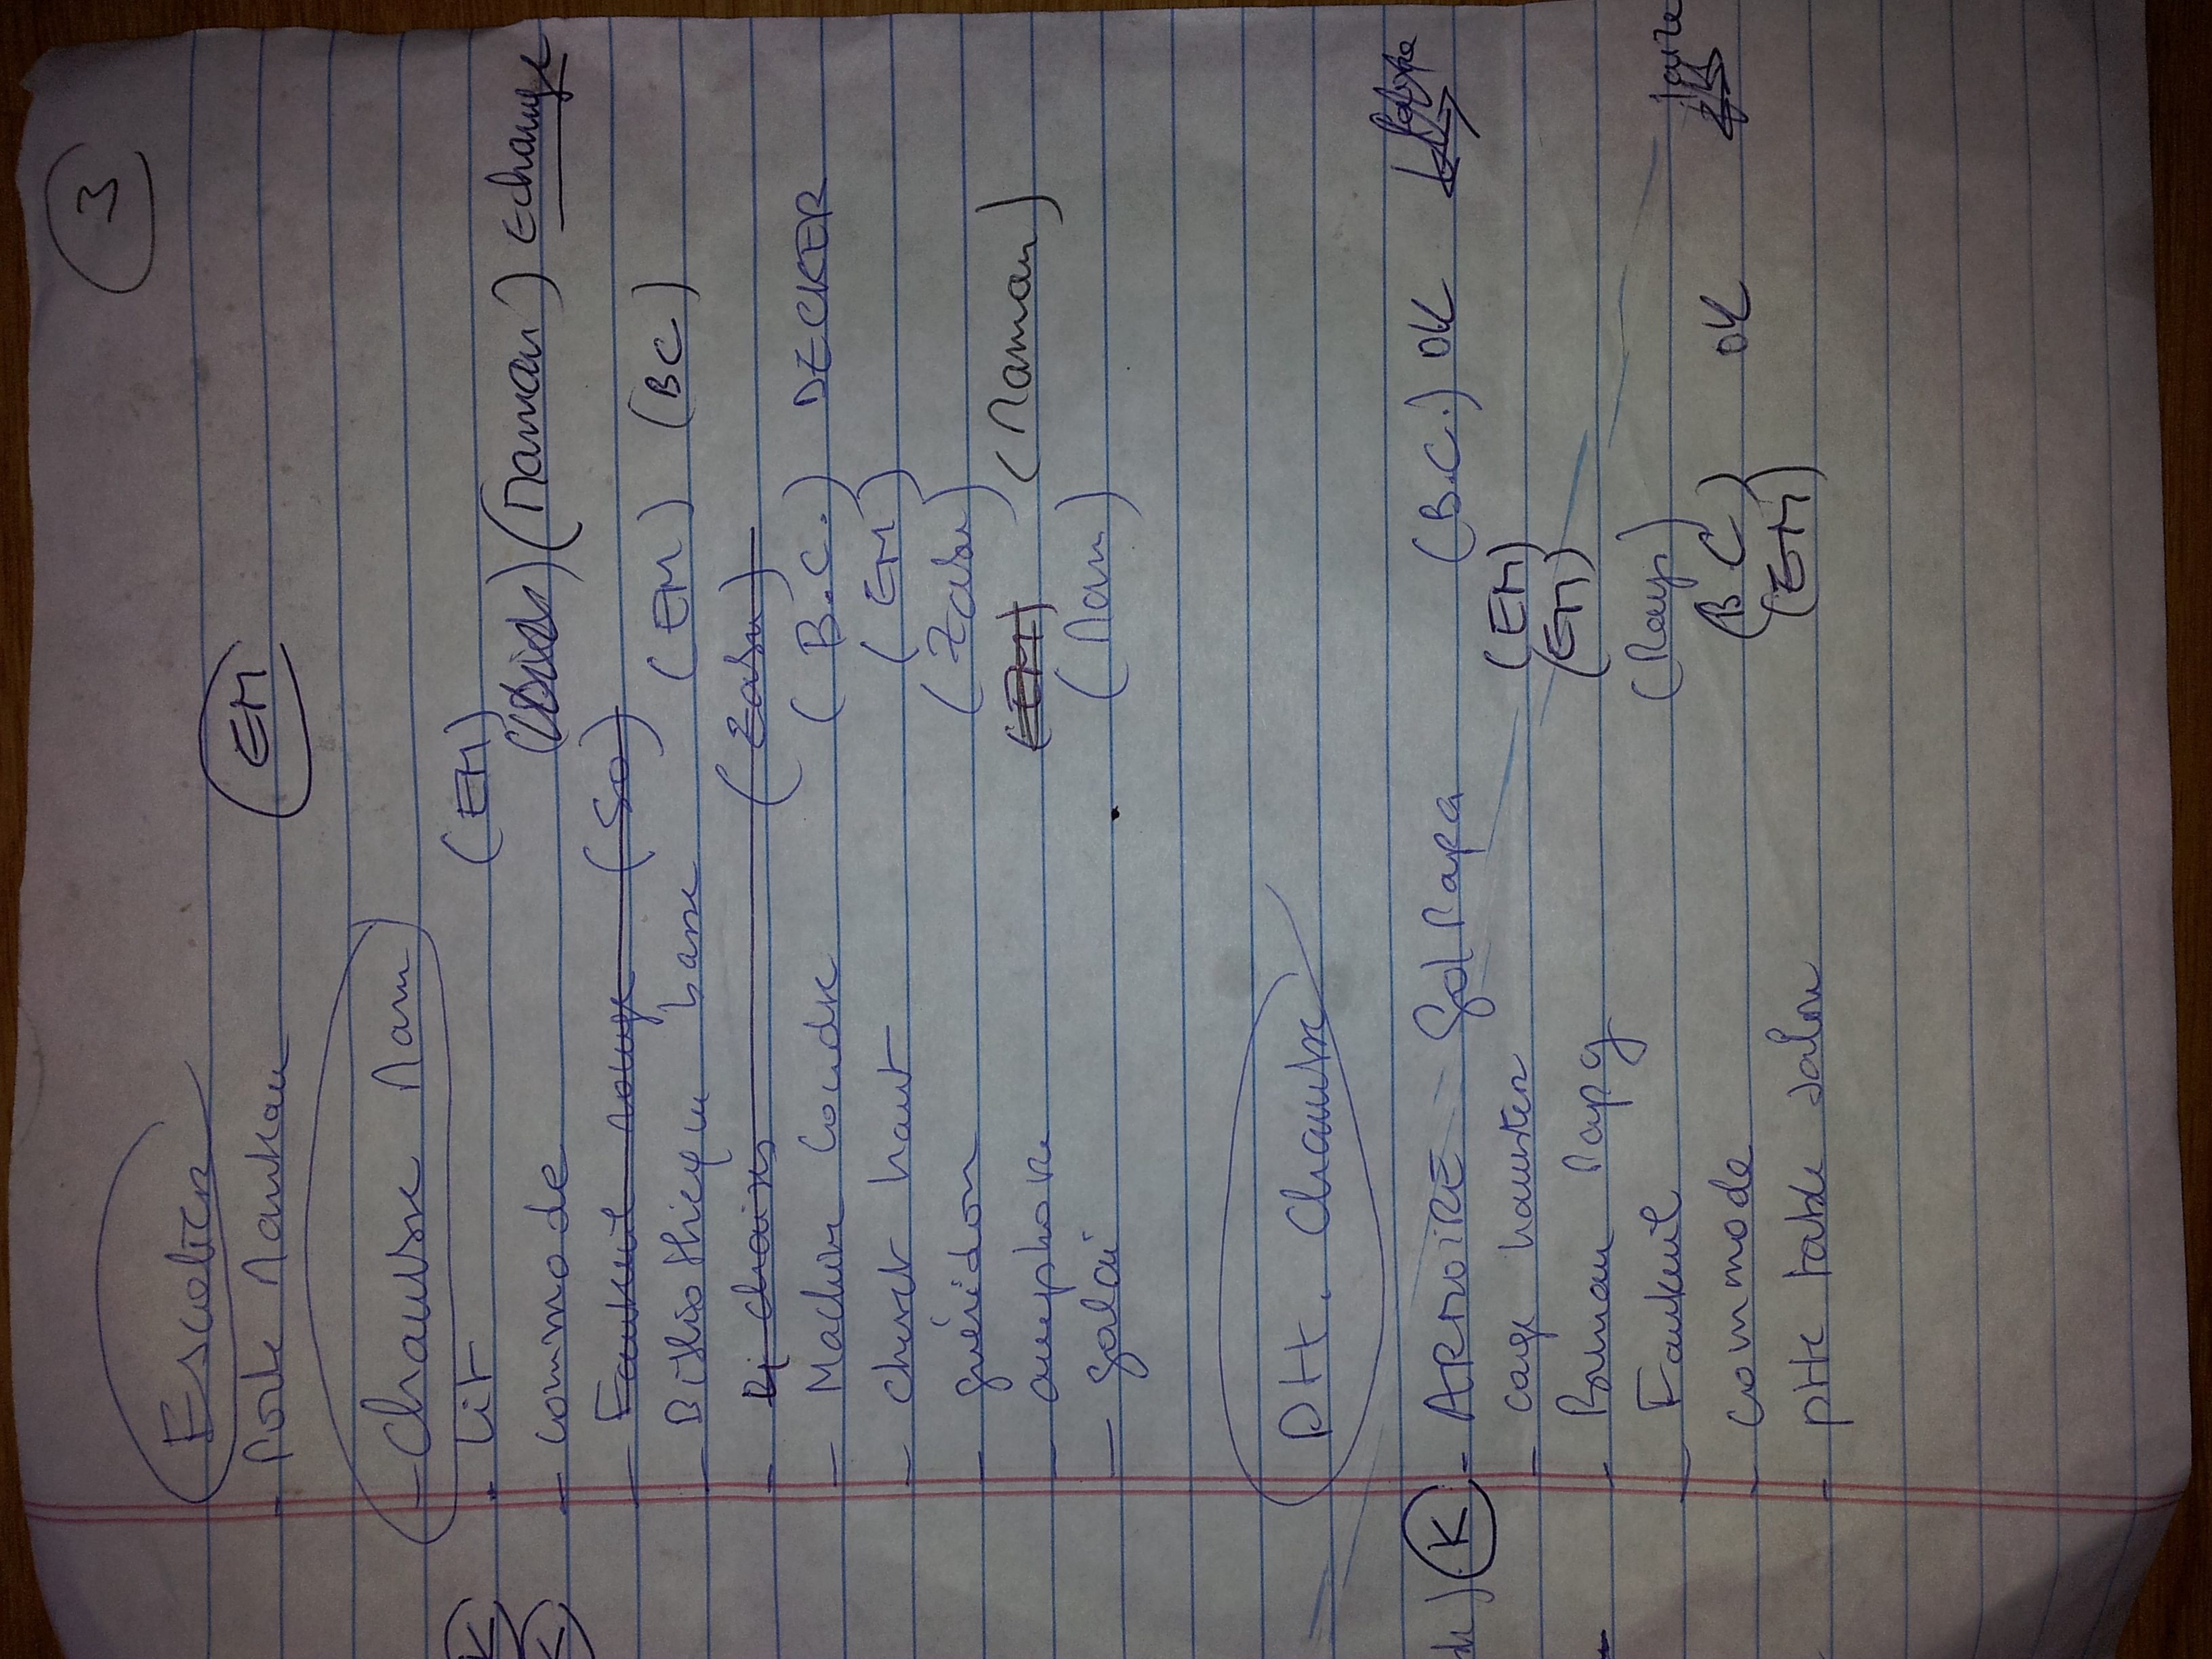 3
Escalier
- Porte Manteau (EM)
- Chambre Mam
- Lit (EM)
K - commode (Maman) Echange
K - Fauteuil rouge (SO)
- Bibliothèque basse (EM) (BC)
- 4 chaises (Zabu)
- Machine Coudre (B.C.) DECKER
- chevet haut (EM)
- guéridon (Zabu)
- amphore (EM) (Maman)
- galai (Mam)
Ptt. Chambre
K - ARMOIRE Gd Papa (B.C.) OK
- cage hamster (EM)
- Bureau Papy (EM)
- Fauteuil (Papy)
- commode (BC) OK
- ptte table salon (EM)